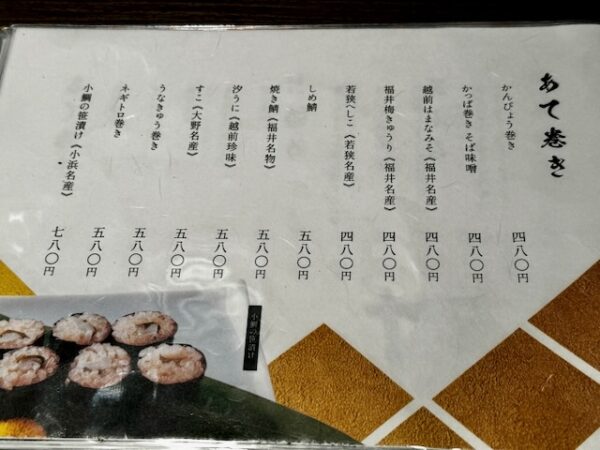 あて巻き
かんぴょう巻き 四八〇円
かっぱ巻き そば味噌 四八〇円
越前はまなみそ《福井名産》 四八〇円
福井梅きゅうり《福井名産》 四八〇円
若狭へしこ《若狭名産》 四八〇円
しめ鯖 五八〇円
焼き鯖《福井名物》 五八〇円
汐うに《越前珍味》 五八〇円
すこ《大野名産》 五八〇円
うなきゅう巻き 五八〇円
ネギトロ巻き 五八〇円
小鯛の笹漬け《小浜名産》 七八〇円
小鯛の笹漬け